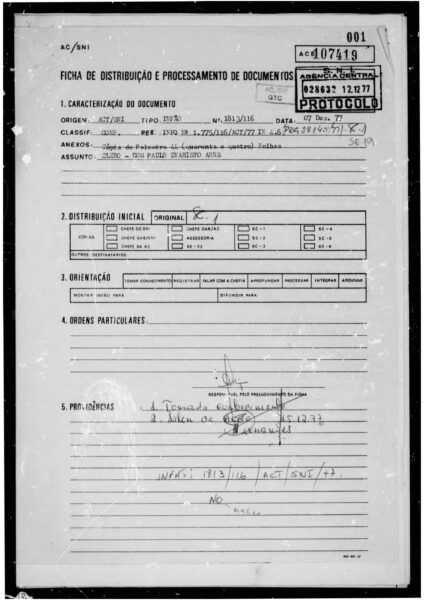 001
AC/SNI
ACE 107419
FICHA DE DISTRIBUIÇÃO E PROCESSAMENTO DE DOCUMENTOS
S.N.I.
AGÊNCIA CENTRAL
028632 12.12.77
PROTOCOLO
GTC
1. CARACTERIZAÇÃO DO DOCUMENTO
ORIGEM: ACT/SNI TIPO: INFÃO Nº 1813/116 DATA: 07 Dez. 77
CLASSIF: CONF. REF: INFO Nº 1.775/116/ACT/77 IN 4.6
ANEXOS: Cópia de Palestra 44 (quarenta e quatro) Folhas
ASSUNTO: CLERO - DOM PAULO EVARISTO ARNS
2. DISTRIBUIÇÃO INICIAL ORIGINAL SC.1
CÓPIAS
CHEFE DO SNI CHEFE GAB/AC SC-1 SC-4
CHEFE GAB/SNI ASSESSORIA SC-2 SC-5
CHEFE DA AC SE-02 SC-3 SC-6
OUTROS DESTINATÁRIOS:
3. ORIENTAÇÃO
TOMAR CONHECIMENTO REGISTRAR FALAR COM A CHEFIA APROFUNDAR PROCESSAR INTEGRAR ARQUIVAR
MONTAR INFÃO PARA: DIFUNDIR PARA:
4. ORDENS PARTICULARES:
RESPONSÁVEL PELO PREENCHIMENTO DA FICHA
5. PROVIDÊNCIAS
1. Tomado conhecimento
15.12.77
INFÃO: 1813/116/ACT/SNI/77.
NO